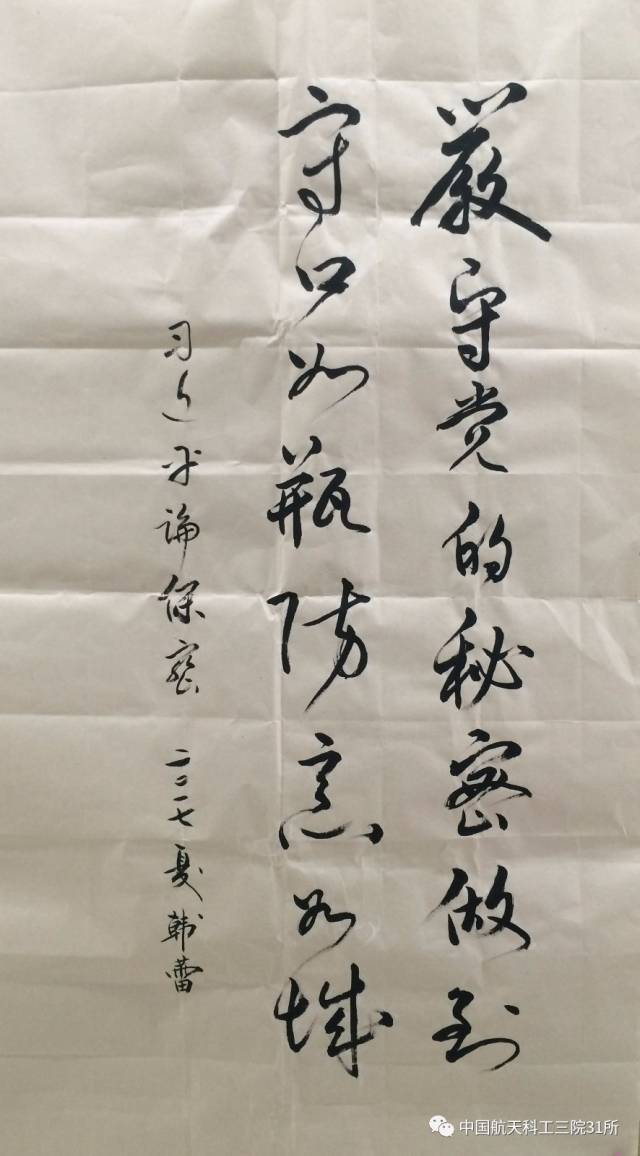 嚴守党的秘密做到
守口如瓶防意如城
习近平論保密 二〇一七夏韩蕾
中国航天科工三院31所